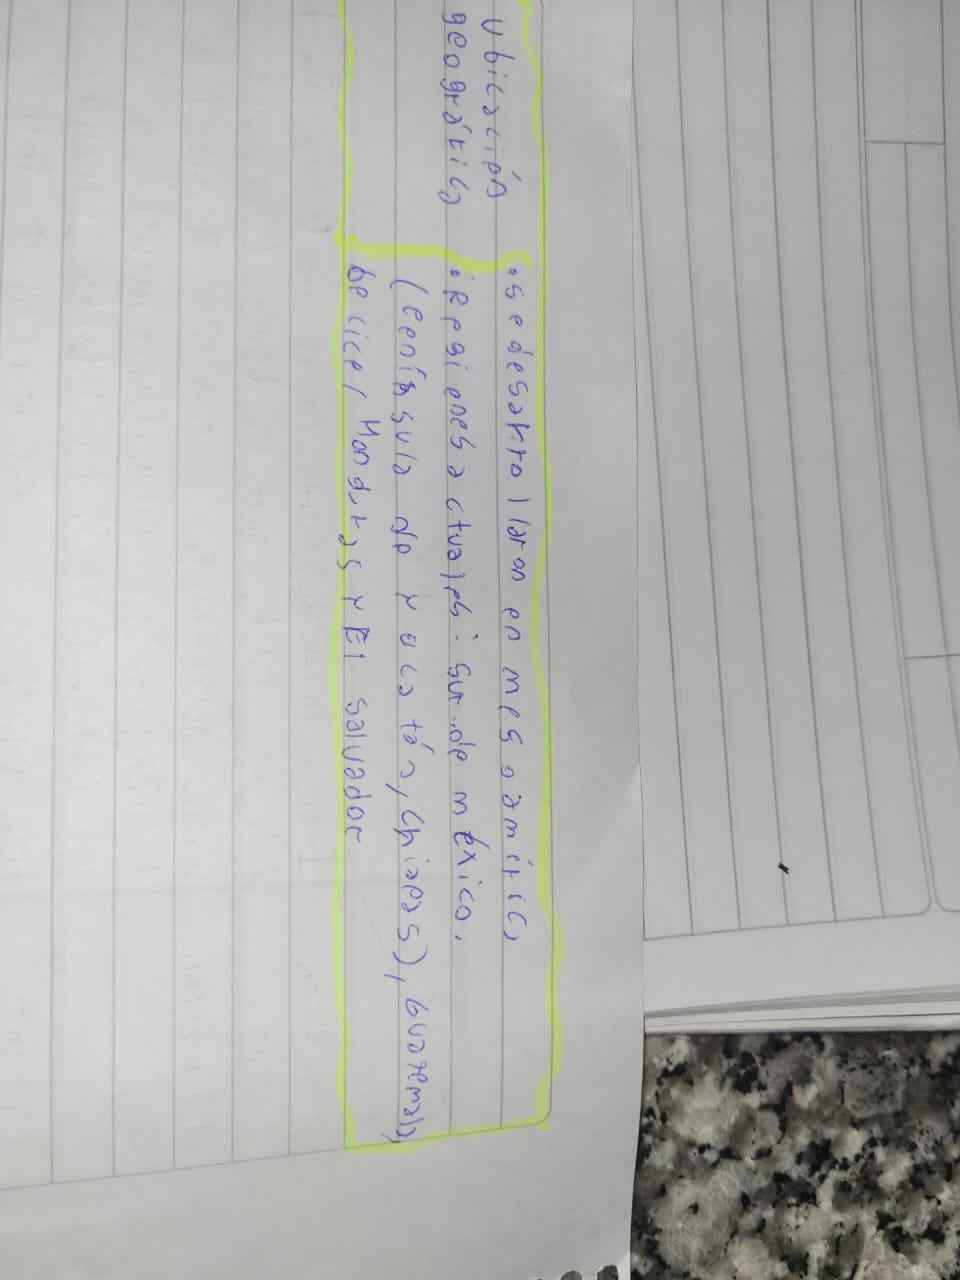 Ubicación
geográfica
• se desarrollaron en mesoamíric,
• Regiones actuales: sur de México,
(Península de Yucatán, Chiapas), Guatemala,
belice, Honduras y El salvador